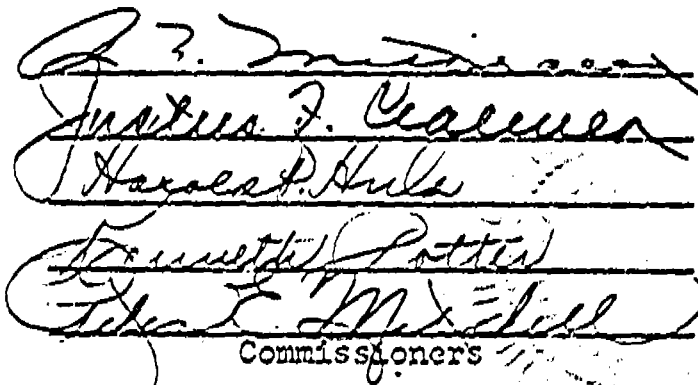 R. E. Mittelstaedt
Justus F. Craemer
Harold P. Huls
Kenneth Potter
Peter E. Mitchell
Commissioners